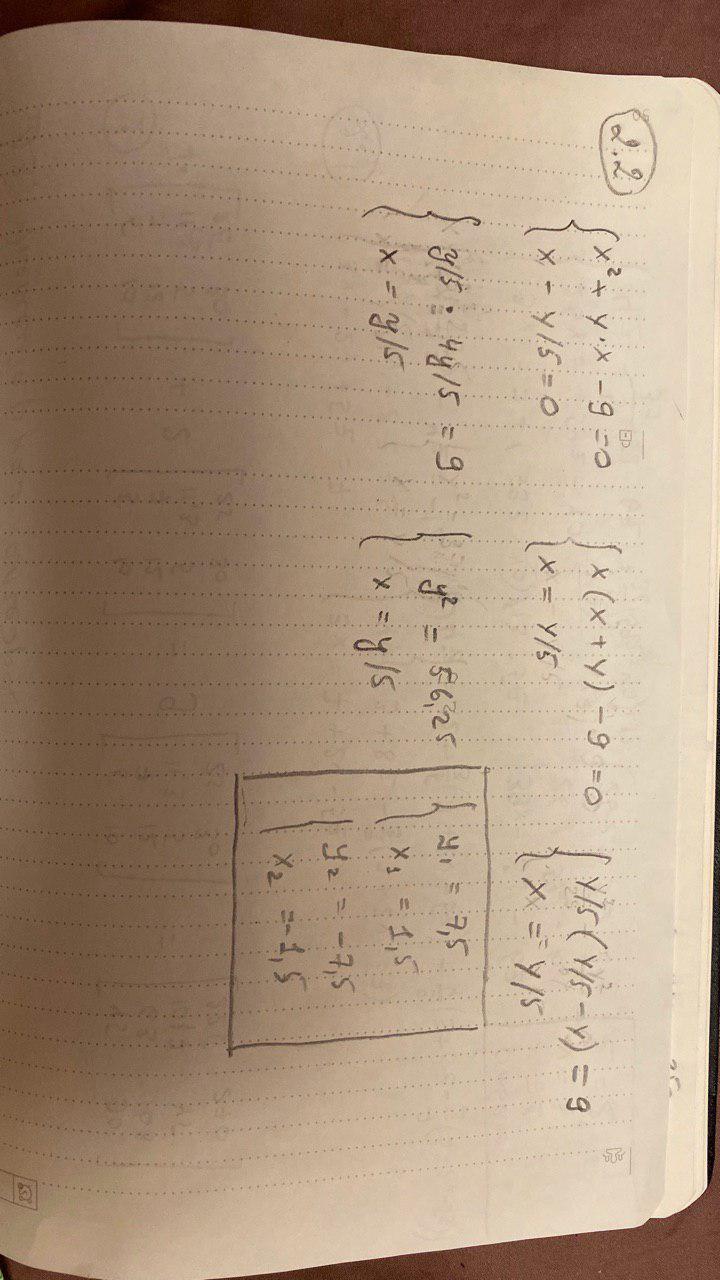 2.2
x² + y·x - 9 = 0
x - y/5 = 0
x(x + y) - 9 = 0
x = y/5
y/5(y/5 - y) = 9
x = y/5
y/5 · 4y/5 = 9
x = y/5
y² = 56,25
x = y/5
y₁ = 7,5
x₁ = 1,5
y₂ = -7,5
x₂ = -1,5